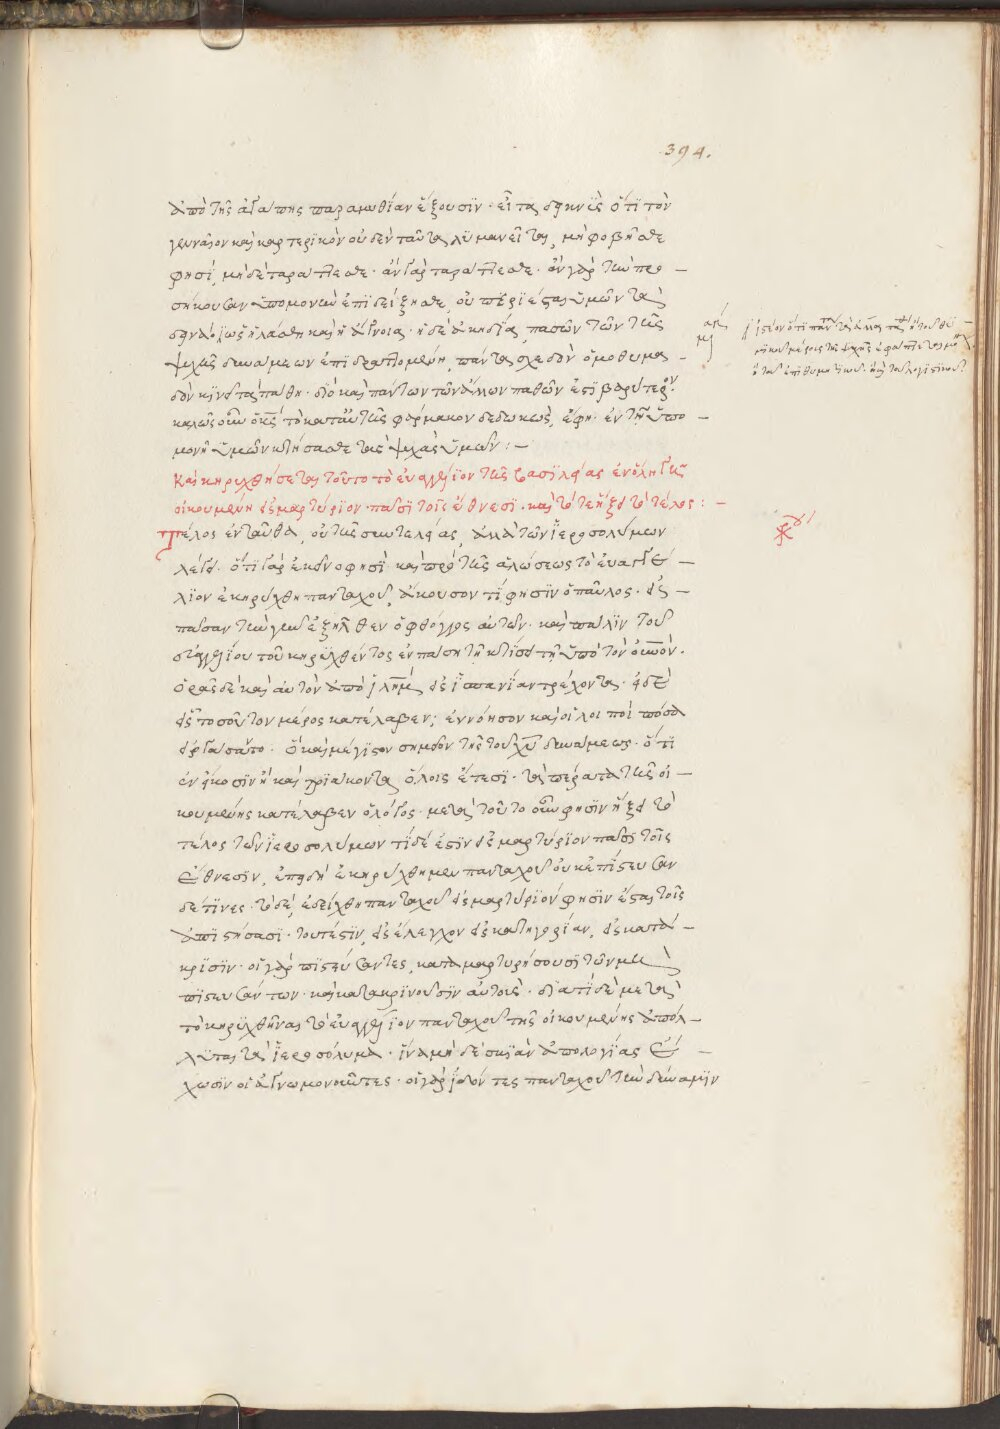 394.
ἀπὸ τῆς ἀγάπης παραμυθίαν ἕξουσϊν · εἶτα δεικνὺς ὅτϊ τὸν
γενναῖον καὶ καρτερϊκὸν οὐδὲν ταῦτα λϋμανεῖται, μὴ φοβῆσθε
φησὶ, μὴ δὲ ταράττεσθε · ἂν γὰρ ταράττεσθε · ἂν γὰρ τὴν προ –
σήκουσαν ὑπομονὴν ἐπϊδείξησθε, οὐ περϊέσται ὑμῶν τὰ
δεινὰ
ψυχῆς δυνάμεων ἐπιδραττομένη, πάντα σχεδὸν ὁμοθυμα –
δὸν κϊνεῖ τὰ πάθη · διὸ καὶ πάντων τῶν ἄλλων παθῶν ἐστὶ βαρύτερον ·
καλῶς οὖν ὁ κς τὸ κατ' αὐτῆς φάρμακον δεδωκὼς, ἔφη · ἐν τῇ ὑπο –
μονῇ ὑμῶν κτήσασθε τὰς ψυχὰς ὑμῶν : –
Καὶ κηρυχθήσεται τοῦτο τὸ εὐαγγέλϊον τῆς βασϊλείας ἐν ὅλῃ τῇ
οἰκουμένῃ εἰς μαρτύρϊον · πᾶσϊ τοῖς ἔθνεσϊ · καὶ τότε ἥξει τὸ τέλος : –
Τέλος ἐνταῦθα, οὐ τῆς συντελείας, ἀλλὰ τῶν ἱεροσολύμων
λέγει · ὅτϊ γὰρ ἐκεῖνό φησϊ · καὶ πρὸ τῆς ἁλώσεως τὸ εὐαγγέ –
λϊον ἐκηρύχθη πανταχοῦ, ἄκουσον τί φησϊν ὁ παῦλος · εἰς –
πᾶσαν τὴν γῆν ἐξῆλθεν ὁ φθόγγος αὐτῶν · καὶ πάλϊν τοῦ
εὐαγγελίου τοῦ κηρϋχθέντος ἐν πάσῃ τῇ κτίσει τῇ ὑπὸ τὸν οὐνόν ·
ὁρᾷς δὲ καὶ αὐτὸν ἀπὸ ἱλημ εἰς ἱσπανΐαν τρέχοντα · εἰ δὲ
εἷς τοσοῦτον μέρος κατέλαβεν; ἐννόησον καὶ οἱ λοιποὶ πόσα
εἰργάσαντο · ὃ καὶ μέγϊστον σημεῖον τῆς τοῦ χυ δυνάμεως · ὅτϊ
ἐν εἴκοσϊν ἢ καὶ τρϊάκοντα ὅλοις ἔτεσϊ · τὰ πέρατα τῆς οἰ –
κουμένης κατέλαβεν ὁ λόγος · μετὰ τοῦτο οὖν φησϊν ἥξει τὸ
τέλος τῶν ἱεροσολύμων τί δέ ἐστϊν εἰς μαρτύρϊον πᾶσϊ τοῖς
ἔθνεσϊν, ἐπειδὴ ἐκηρύχθη μὲν πανταχοῦ οὐκ ἐπίστευσαν
δέ τϊνες · τὸ δὲ, ἐδείχθη πανταχοῦ εἰς μαρτύρϊόν φησϊν ἔσται τοῖς
ἀπϊστήσασϊ · τουτέστϊν, εἰς ἔλεγχον εἰς κατηγορίαν, εἰς κατά –
κρϊσϊν · οἱ γὰρ πϊστεύσαντες, καταμαρτυρήσουσϊ τῶν μὴ
πϊστευσάντων · καὶ κατακρίνουσϊν αὐτοὺς · διατΐ δὲ μετὰ
τὸ κηρϋχθῆναι τὸ εὐαγγέλϊον πανταχοῦ τῆς οἰκουμένης ἀπόλ –
λϋται τὰ ἱεροσόλυμα · ἵνα μὴ δὲ σκϊὰν ἀπολογΐας ἔ –
χωσϊν οἱ ἀγνωμονοῦντες · οἱ γὰρ ἰδόντες πανταχοῦ τὴν δύναμϊν